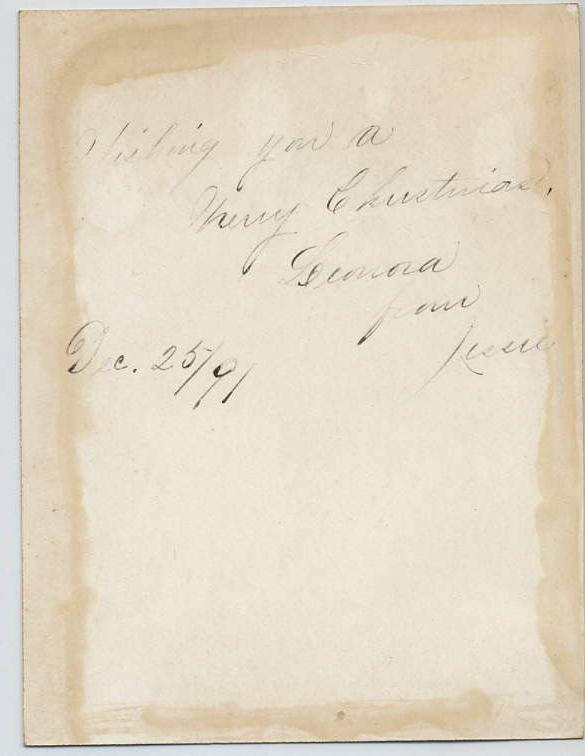 Wishing you a
Merry Christmas.
Leonora
from
Jessie
Dec. 25/91